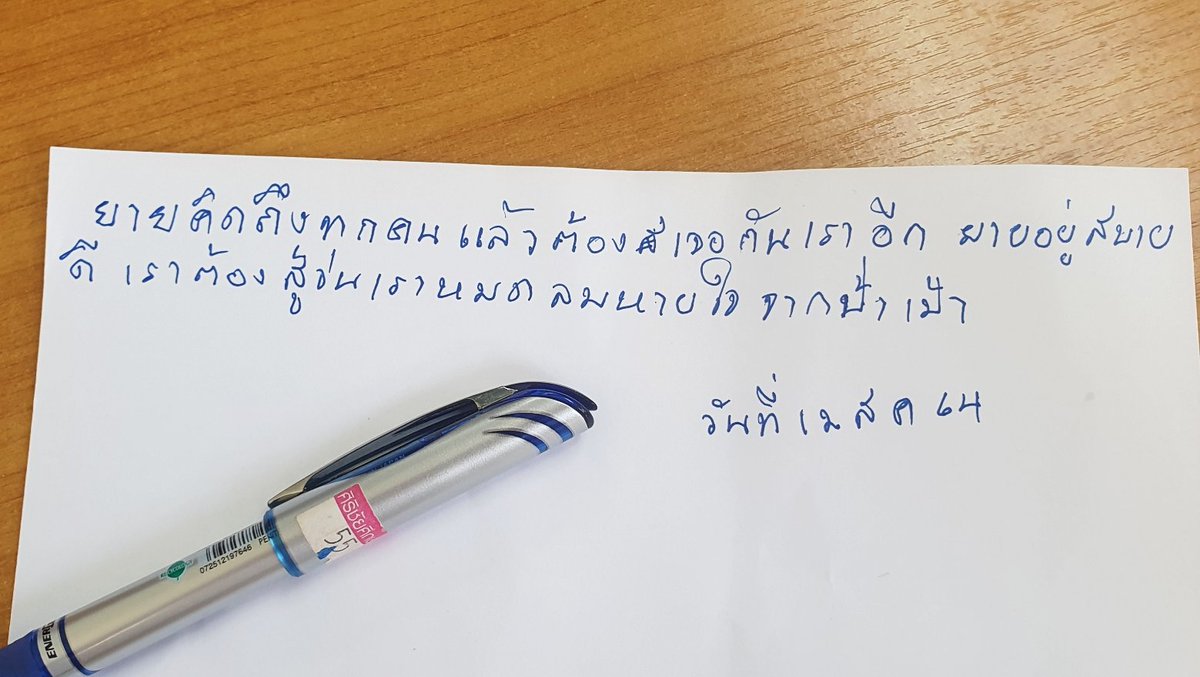 ยายคิดถึงทุกคนแล้วต้องเจอกันเราอีก ยายอยู่สบาย
ดี เราต้องสู้จนเราหมดลมหายใจ จากป้าเป้า
วันที่ ส ค ๖๔
ศิริชัยศึก
55
072512197646 PEN
ENERG